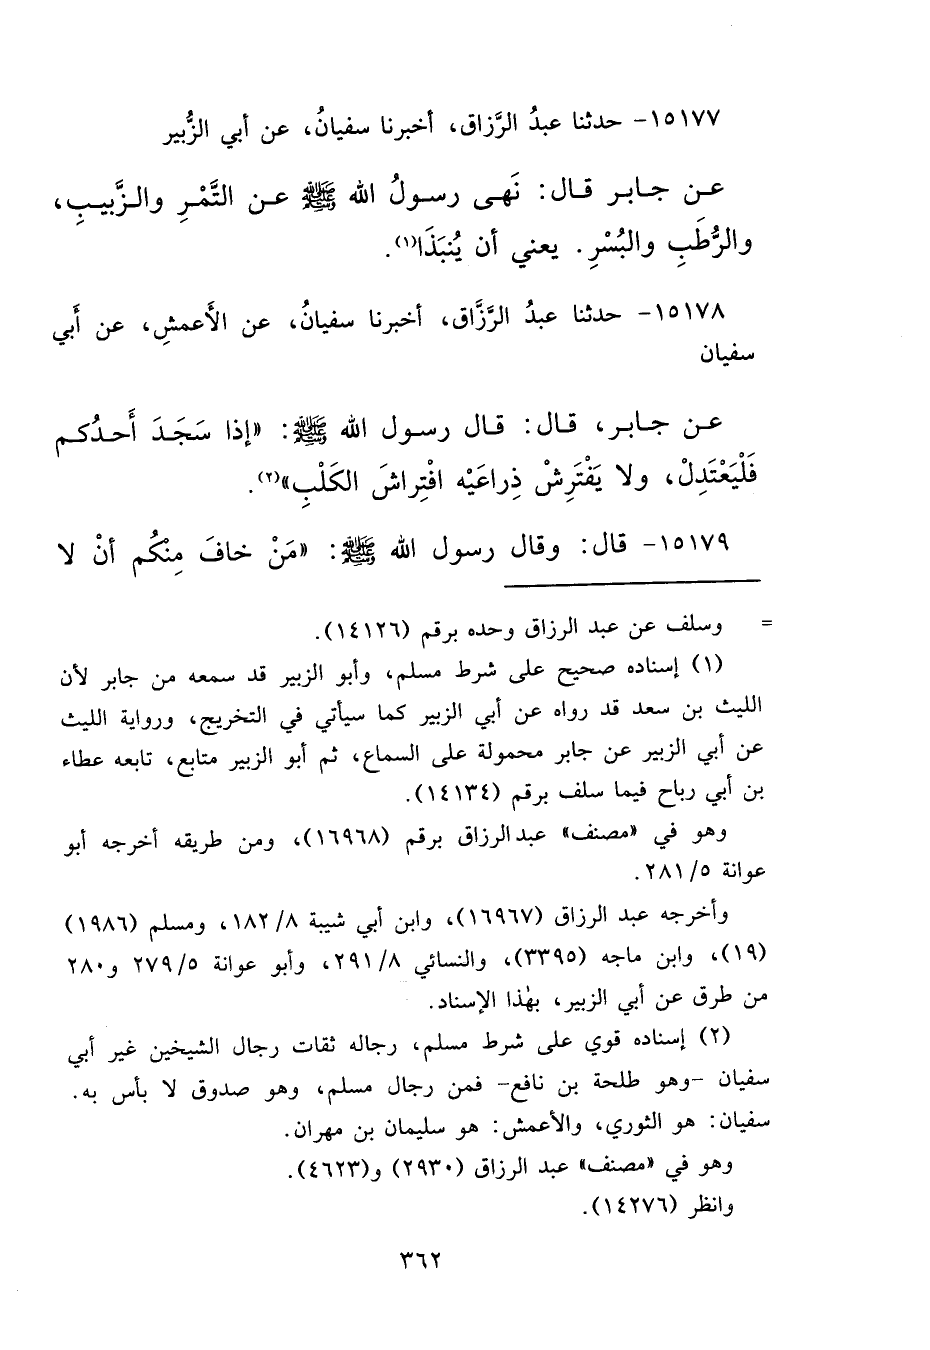 ١٥١٧٧- حدثنا عبدُ الرَّزاق، أخبرنا سفيانُ، عن أبي الزُّبير
عن جابر قال: نَهى رسولُ الله ﷺ عن التَّمْرِ والزَّبيبِ،
والرُّطَبِ والبُسْرِ. يعني أن يُنبَذَا(١).
١٥١٧٨- حدثنا عبدُ الرَّزَّاق، أخبرنا سفيانُ، عن الأَعمشِ، عن أَبي
سفيان
عن جابر، قال: قال رسول الله ﷺ: «إذا سَجَدَ أَحدُكم
فَلْيَعْتَدِلْ، ولا يَفْتَرِشْ ذِراعَيْه افْتِراشَ الكَلْبِ»(٢).
١٥١٧٩- قال: وقال رسول الله ﷺ: «مَنْ خافَ مِنْكُم أنْ لا
= وسلف عن عبد الرزاق وحده برقم (١٤١٢٦).
(١) إسناده صحيح على شرط مسلم، وأبو الزبير قد سمعه من جابر لأن
الليث بن سعد قد رواه عن أبي الزبير كما سيأتي في التخريج، ورواية الليث
عن أبي الزبير عن جابر محمولة على السماع، ثم أبو الزبير متابع، تابعه عطاء
بن أبي رباح فيما سلف برقم (١٤١٣٤).
وهو في «مصنف» عبد الرزاق برقم (١٦٩٦٨)، ومن طريقه أخرجه أبو
عوانة ٢٨١/٥.
وأخرجه عبد الرزاق (١٦٩٦٧)، وابن أبي شيبة ١٨٢/٨، ومسلم (١٩٨٦)
(١٩)، وابن ماجه (٣٣٩٥)، والنسائي ٢٩١/٨، وأبو عوانة ٢٧٩/٥ و٢٨٠
من طرق عن أبي الزبير، بهٰذا الإسناد.
(٢) إسناده قوي على شرط مسلم، رجاله ثقات رجال الشيخين غير أبي
سفيان -وهو طلحة بن نافع- فمن رجال مسلم، وهو صدوق لا بأس به.
سفيان: هو الثوري، والأعمش: هو سليمان بن مهران.
وهو في «مصنف» عبد الرزاق (٢٩٣٠) و(٤٦٢٣).
وانظر (١٤٢٧٦).
٣٦٢